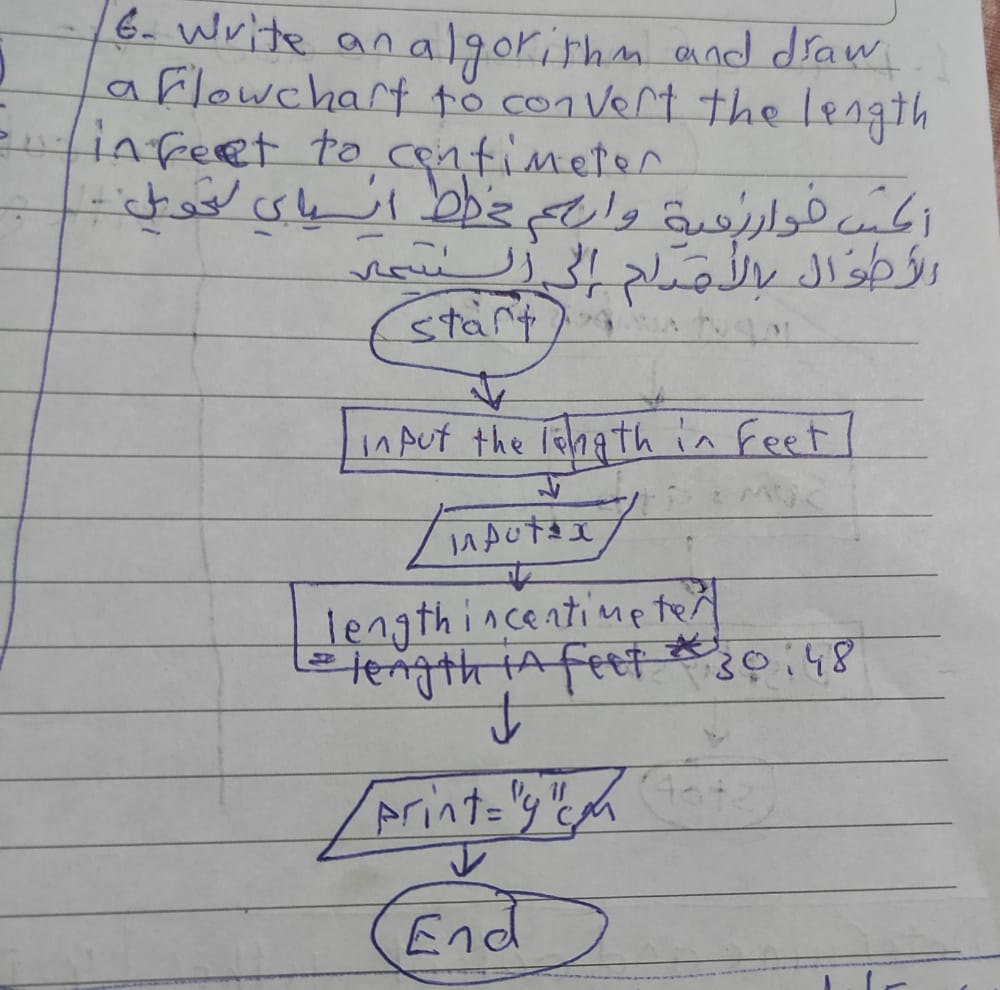 6- Write an algorithm and draw
a Flowchart to convert the length
in Feet to centimeter
اكتب خوارزمية وارسم مخطط انسيابي لتحويل
الأطوال بالأقدام إلى السنتيمتر
start
input the length in Feet
input = x
length in centimeter
= length in feet * 30.48
print = "y" cm
End